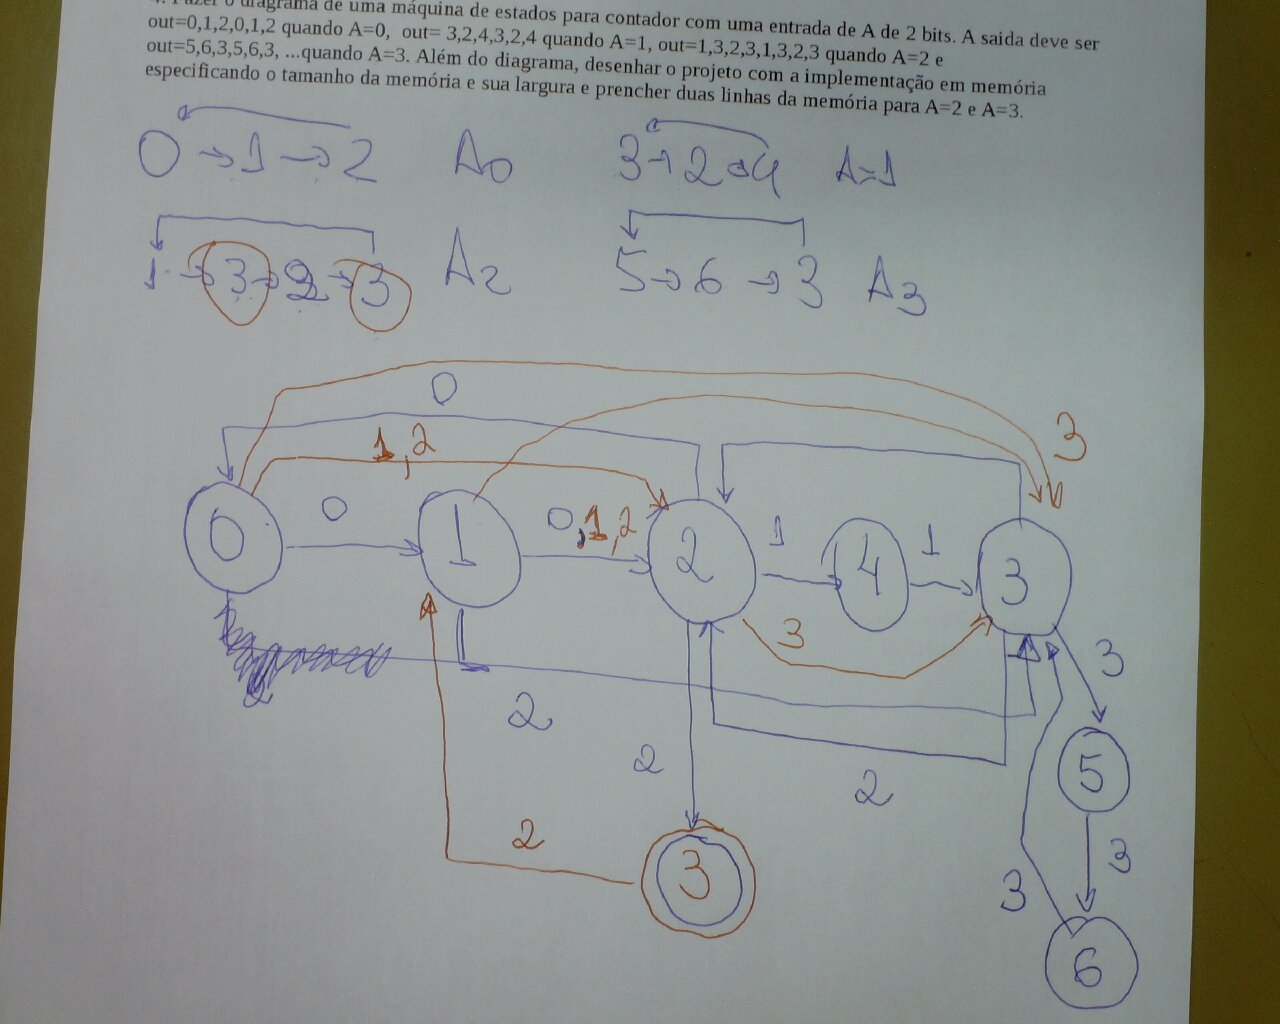 4. Fazer o diagrama de uma máquina de estados para contador com uma entrada de A de 2 bits. A saida deve ser
out=0,1,2,0,1,2 quando A=0, out= 3,2,4,3,2,4 quando A=1, out=1,3,2,3,1,3,2,3 quando A=2 e
out=5,6,3,5,6,3, ...quando A=3. Além do diagrama, desenhar o projeto com a implementação em memória
especificando o tamanho da memória e sua largura e prencher duas linhas da memória para A=2 e A=3.
0 → 1 → 2 A0 3 → 2 → 4 A=1
1 → 3 → 2 → 3 A2 5 → 6 → 3 A3
0
1,2 3
0 0 1 0,1,2 2 1 4 1 3
3 3
2
2 2 5
2 3 3
3 6